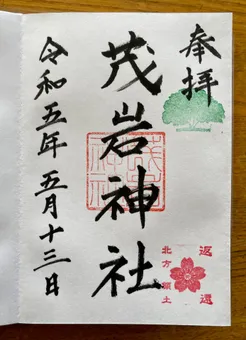 奉拝
茂岩神社
茂岩神社
令和五年五月十三日
返還
北方領土